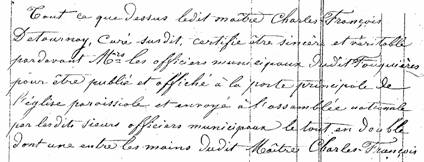 Tout ce que dessus ledit maître Charles-François
Detournay, curé susdit, certifie être sincère et véritable
pardevant Mrs les officiers municipaux dudit Fouquières
pour être publié et affiché à la porte principale de
l'église paroissiale et envoyé à l'assemblée nationale
par lesdits sieurs officiers municipaux le tout en double
dont une entre les mains dudit Maître Charles-François